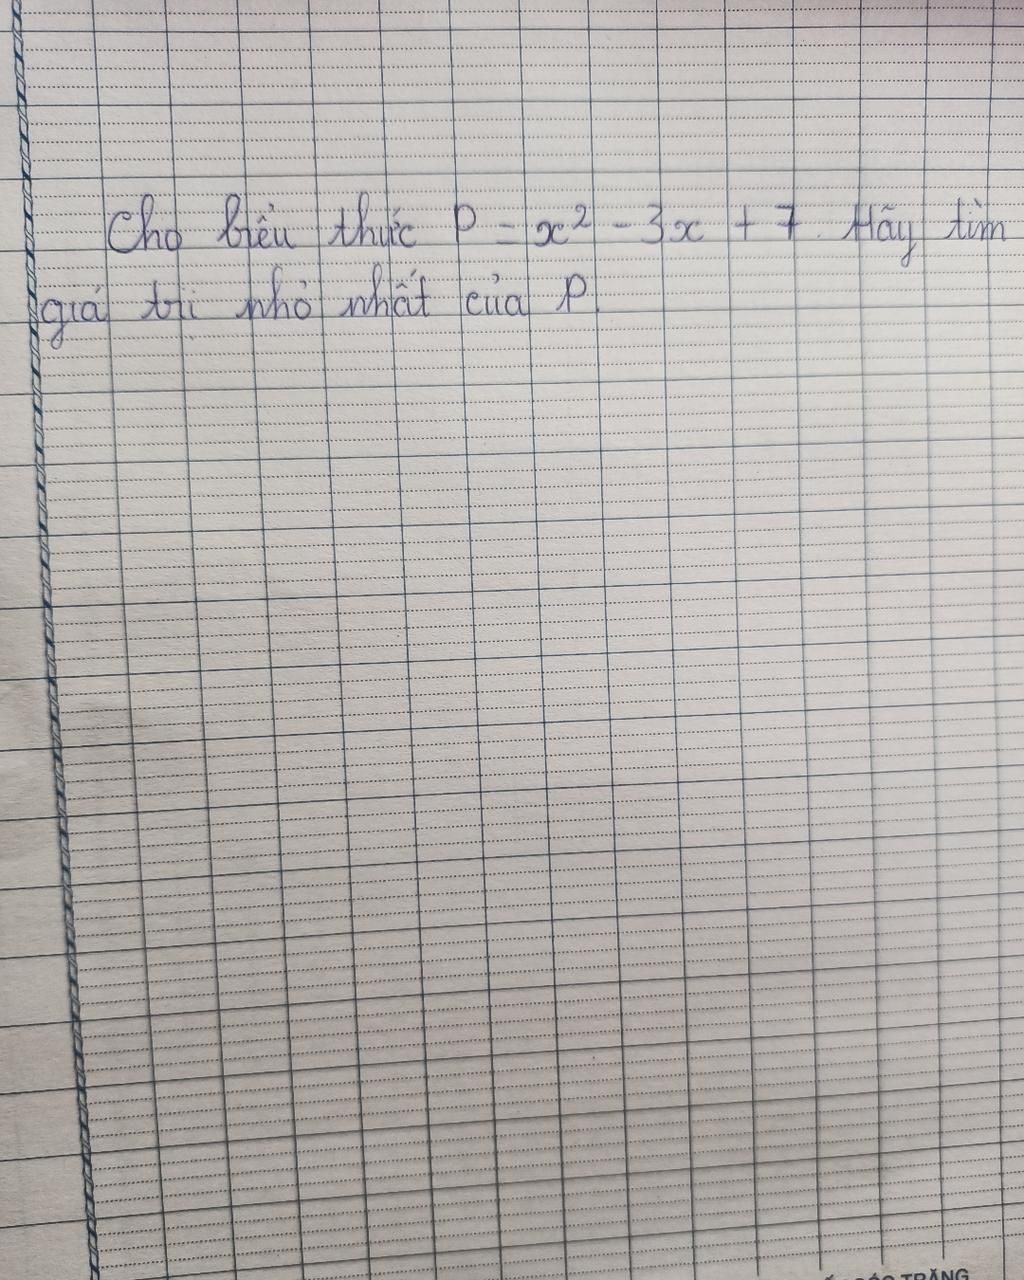 Cho biểu thức P = x² - 3x + 7. Hãy tìm
giá trị nhỏ nhất của P.
TRĂNG